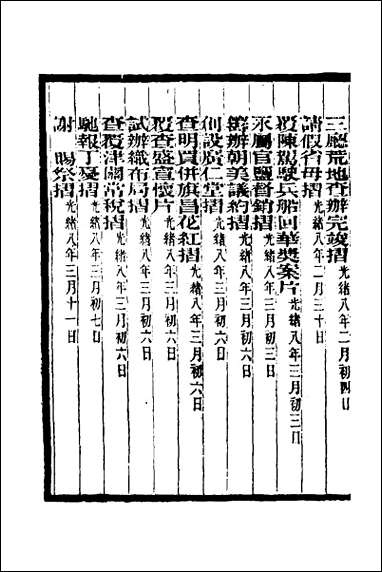 三廳荒地查辦完竣摺光緒八年二月初四日
請假省母摺光緒八年二月三十日
覆陳駕駛兵船回華獎案片光緒八年三月初二日
永屬官鹽督銷摺光緒八年三月初三日
籌辦朝美議約摺光緒八年三月初六日
創設廣仁堂摺光緒八年三月初六日
查明買併旗昌花紅摺光緒八年三月初六日
覆查盛宣懷片光緒八年三月初六日
試辦織布局摺光緒八年三月初六日
查覆津關常稅摺光緒八年三月初六日
馳報丁憂摺光緒八年三月初七日
謝 賜祭摺光緒八年三月十一日